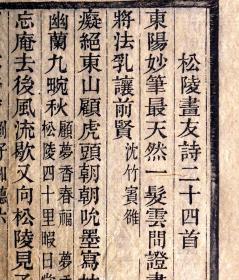 松陵畫友詩二十四首
東陽妙筆最天然一髮雲間證畫
將法乳讓前賢 沈竹賓雒
癡絕東山顧虎頭朝朝吮墨寫
幽蘭九畹秋 顧夢香春福 夢
松陵四十里暇日
忘庵去後風流歇又向松陵見